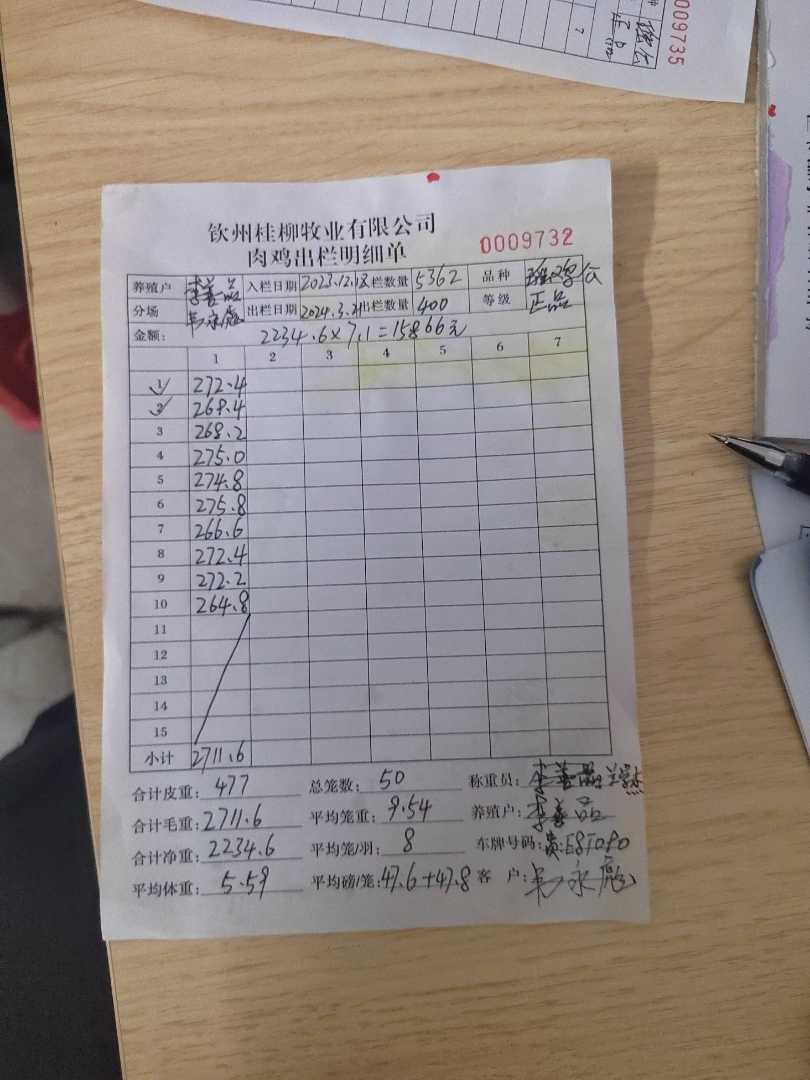 0009735
7
钦州桂柳牧业有限公司
肉鸡出栏明细单
0009732
养殖户 李善品 入栏日期 2023.12.13 栏数量 5362 品种
分场 韦永彪 出栏日期 2024.3. 出栏数量 400 等级 正品
金额: 2234.6×7.1=15866元
1 2 3 4 5 6 7
1 272.4
2 268.4
3 268.2
4 275.0
5 274.8
6 275.8
7 266.6
8 272.4
9 272.2
10 264.8
11
12
13
14
15
小计 2711.6
合计皮重: 477 总笼数: 50 称重员:
合计毛重: 2711.6 平均笼重: 9.54 养殖户: 李善品
合计净重: 2234.6 平均笼/羽: 8 车牌号码:
平均体重: 5.59 平均磅/笼: 47.6+47.8 客 户: 韦永彪